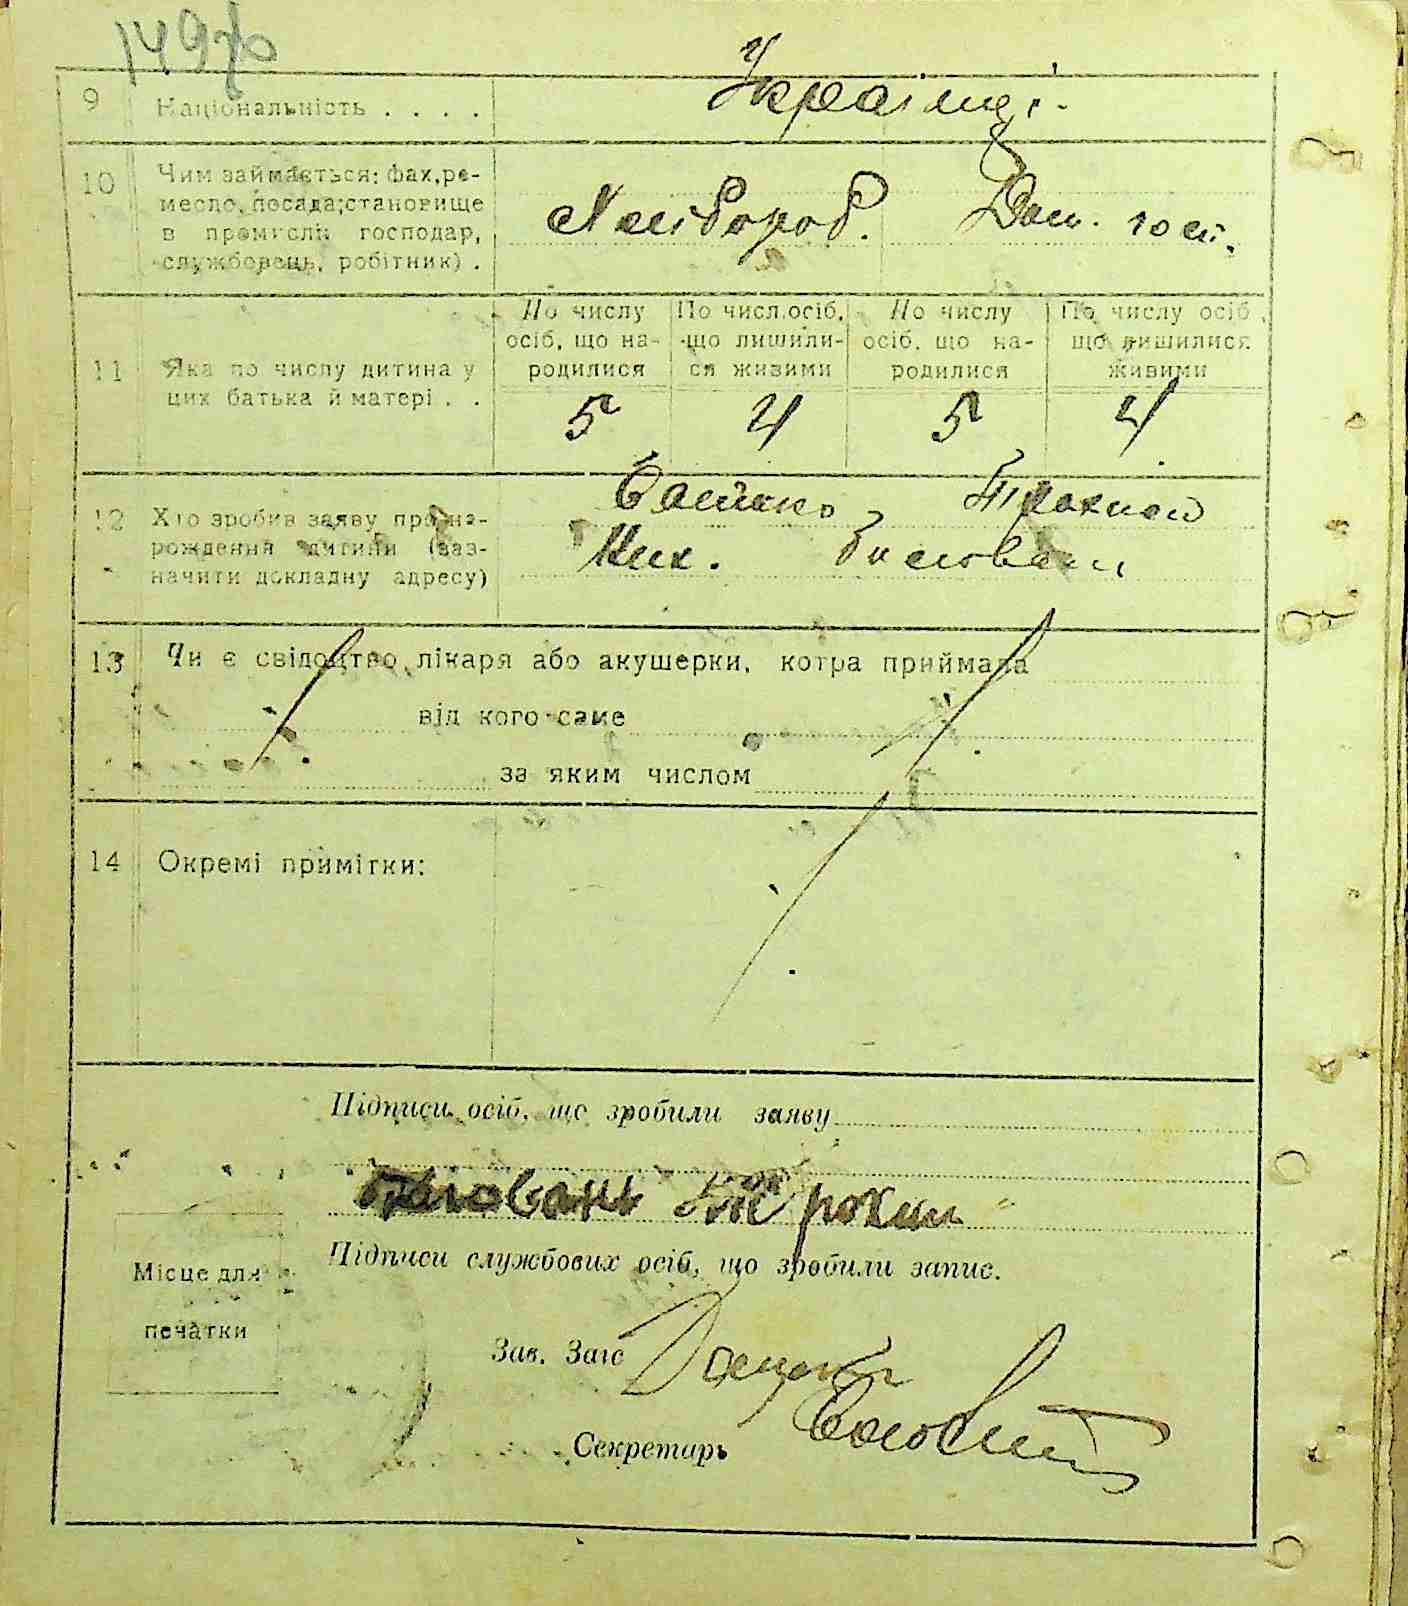 149
9 Національність . . . . Українці.
10 Чим займається: фах, ре-
месло, посада; становище
в промислі: господар,
службовець, робітник) .
Хлібороб. Дом. госп.
11 Яка по числу дитина у
цих батька й матері . .
По числу
осіб, що на-
родилися
По числ. осіб,
що лишили-
ся живими
По числу
осіб, що на-
родилися
По числу осіб,
що лишилися
живими
5 4 5 4
12 Хто зробив заяву про на-
рождення дитини (заз-
начити докладну адресу)
Батько
13 Чи є свідоцтво лікаря або акушерки, котра приймала
від кого саме
за яким числом
14 Окремі примітки:
Підписи осіб, що зробили заяву
Підписи службових осіб, що зробили запис.
Місце для
печатки
Зав. Загс
Секретарь